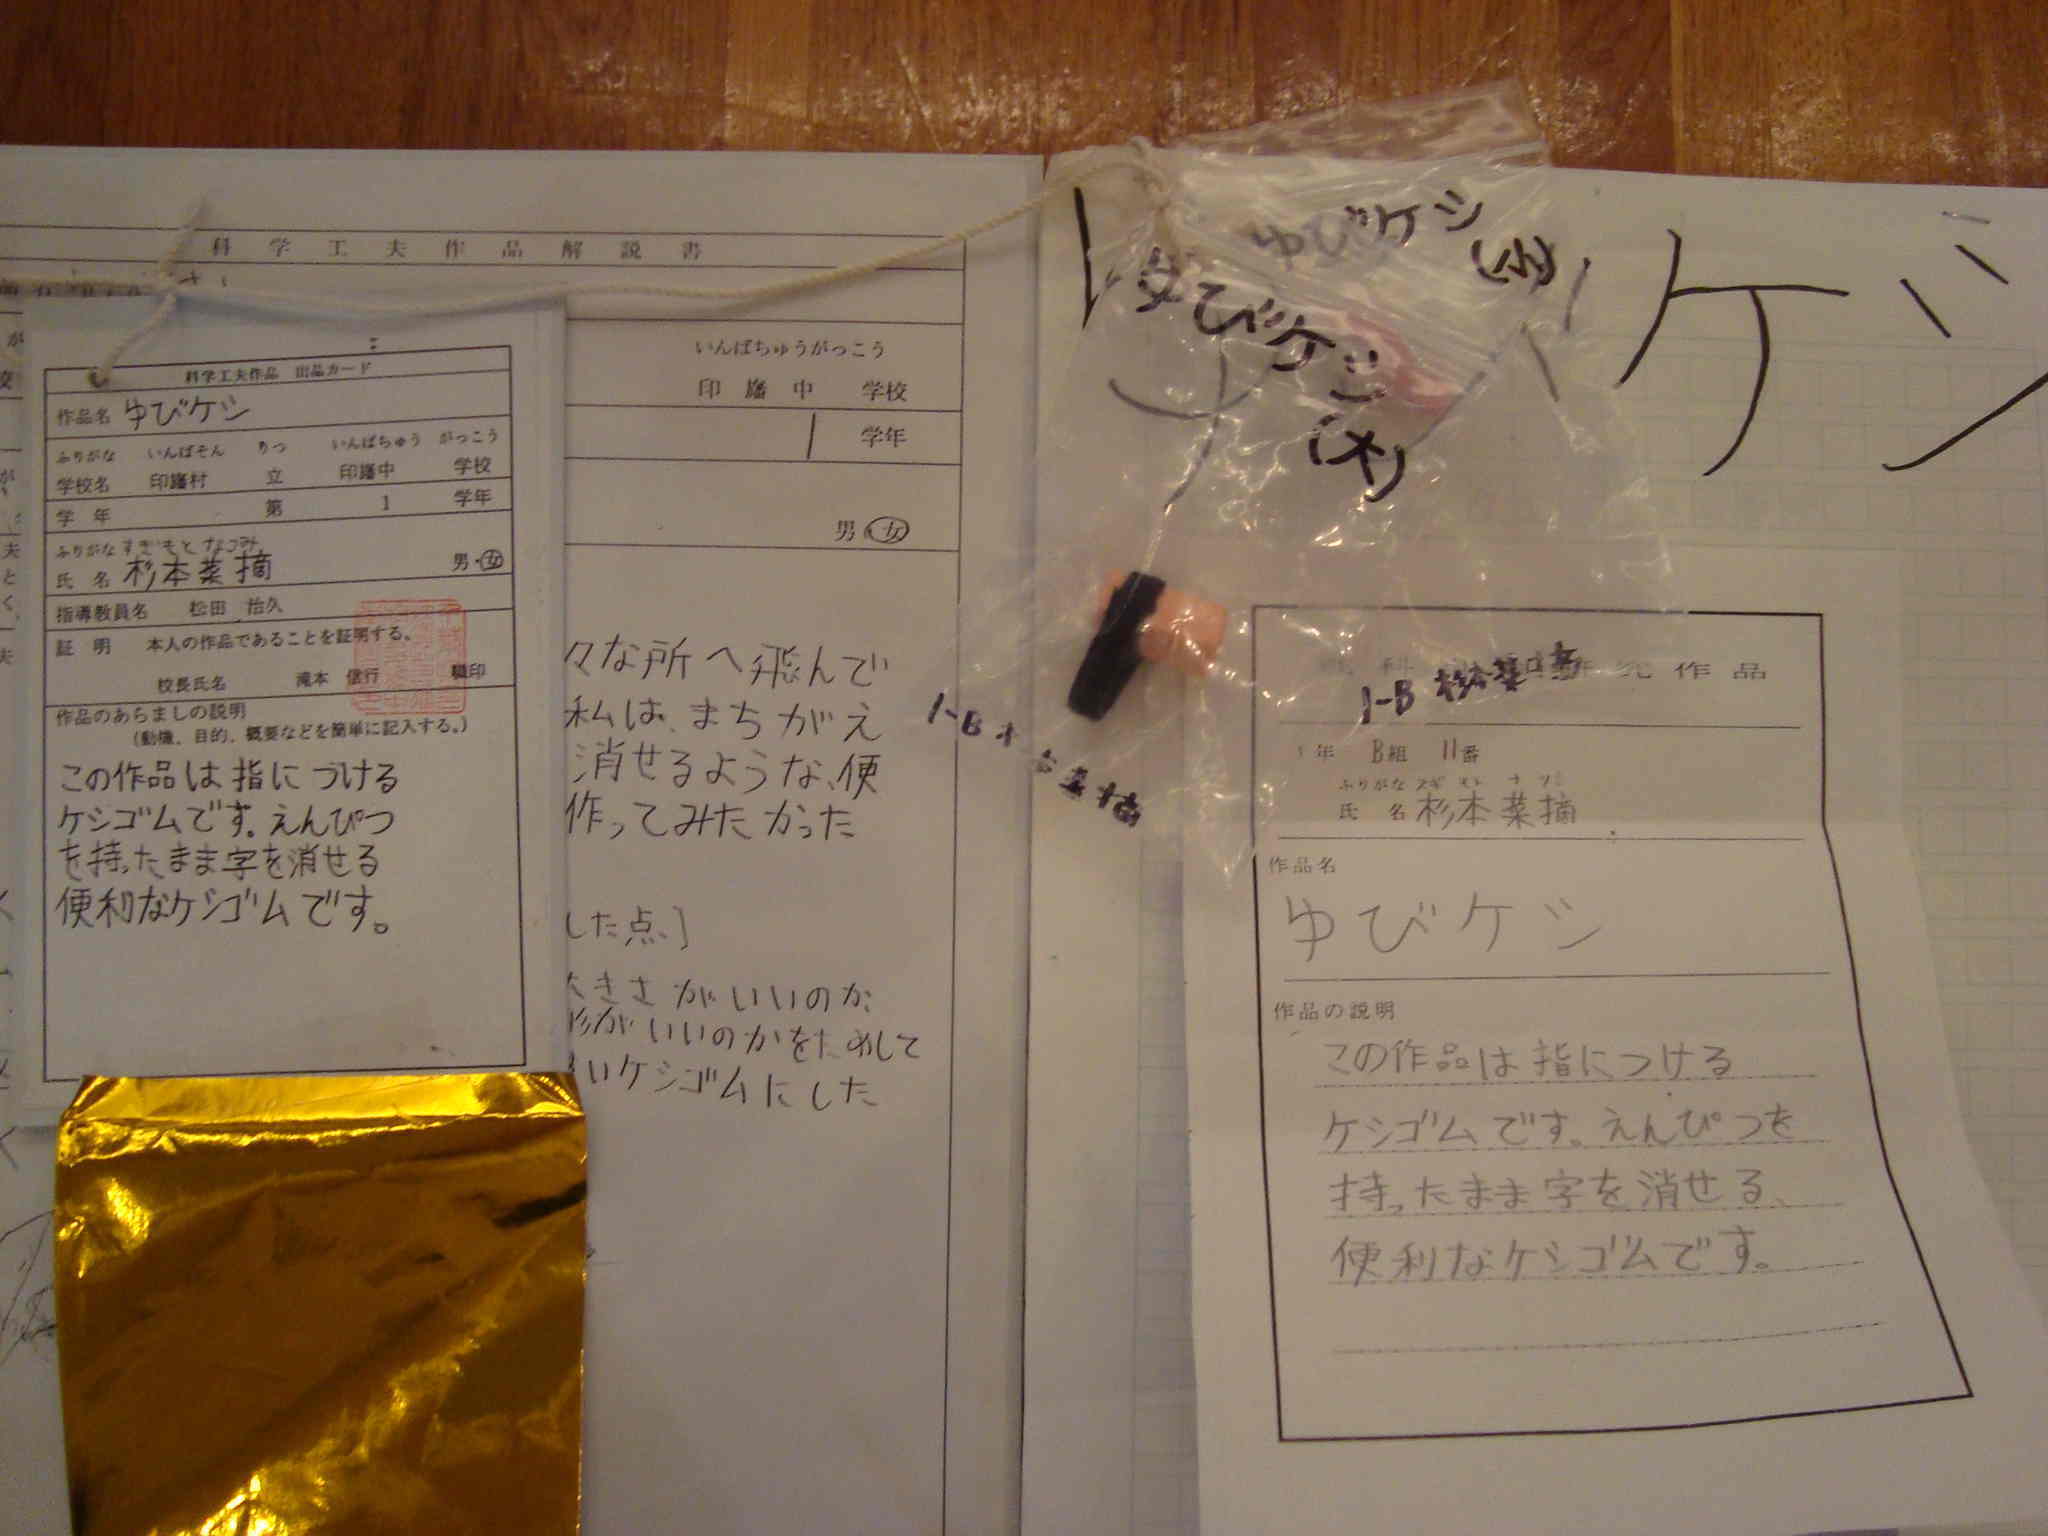 科学工夫作品解説書
いんばちゅうがっこう
印旛中 学校
1 学年
男・女
々な所へ飛んで
私は、まちがえ
消せるような、便
作ってみたかった
した点、]
大きさがいいのか、
形がいいのかをためして
いケシゴムにした
科学工夫作品 出品カード
作品名 ゆびケシ
ふりがな いんばそん りつ いんばちゅう がっこう
学校名 印旛村 立 印旛中 学校
学年 第 1 学年
ふりがな すぎもと なつみ
氏名 杉本菜摘 男・女
指導教員名 松田 治久
証明 本人の作品であることを証明する。
校長氏名 滝本 信行 職印
作品のあらましの説明
(動機、目的、概要などを簡単に記入する。)
この作品は指につける
ケシゴムです。えんぴつ
を持ったまま字を消せる
便利なケシゴムです。
ゆびケシ
ゆびケシ(大)
ケシ
1-B
1-B 杉本菜摘
研究作品
1年 B組 11番
ふりがな スギ モト ナ ツミ
氏名 杉本菜摘
作品名
ゆびケシ
作品の説明
この作品は指につける
ケシゴムです。えんぴつを
持ったまま字を消せる、
便利なケシゴムです。